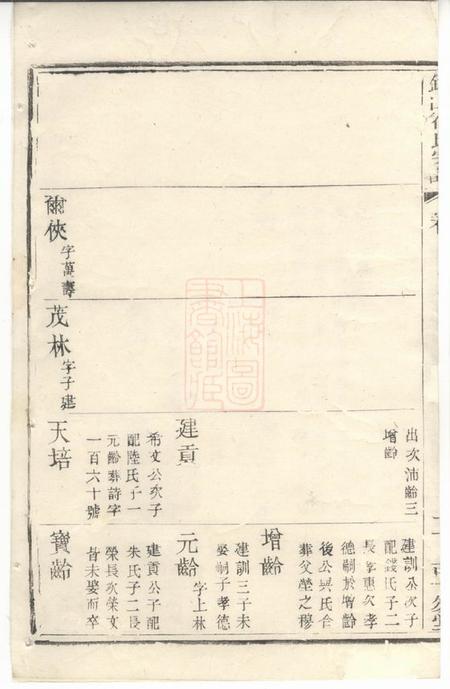 爾俠 字萬壽
茂林 字子建
出次沛齡三
增齡
建貢
希文公次子
配陸氏子一
元齡葬詩字
一百六十號
天培
建訓公次子
配錢氏子二
長孝惠次孝
德嗣於增齡
後公與氏合
葬父塋之穆
增齡
建訓三子未
娶嗣子孝德
元齡 字上林
建貢公子配
朱氏子二長
榮長次榮文
皆未娶而卒
寶齡
上海圖
書館藏